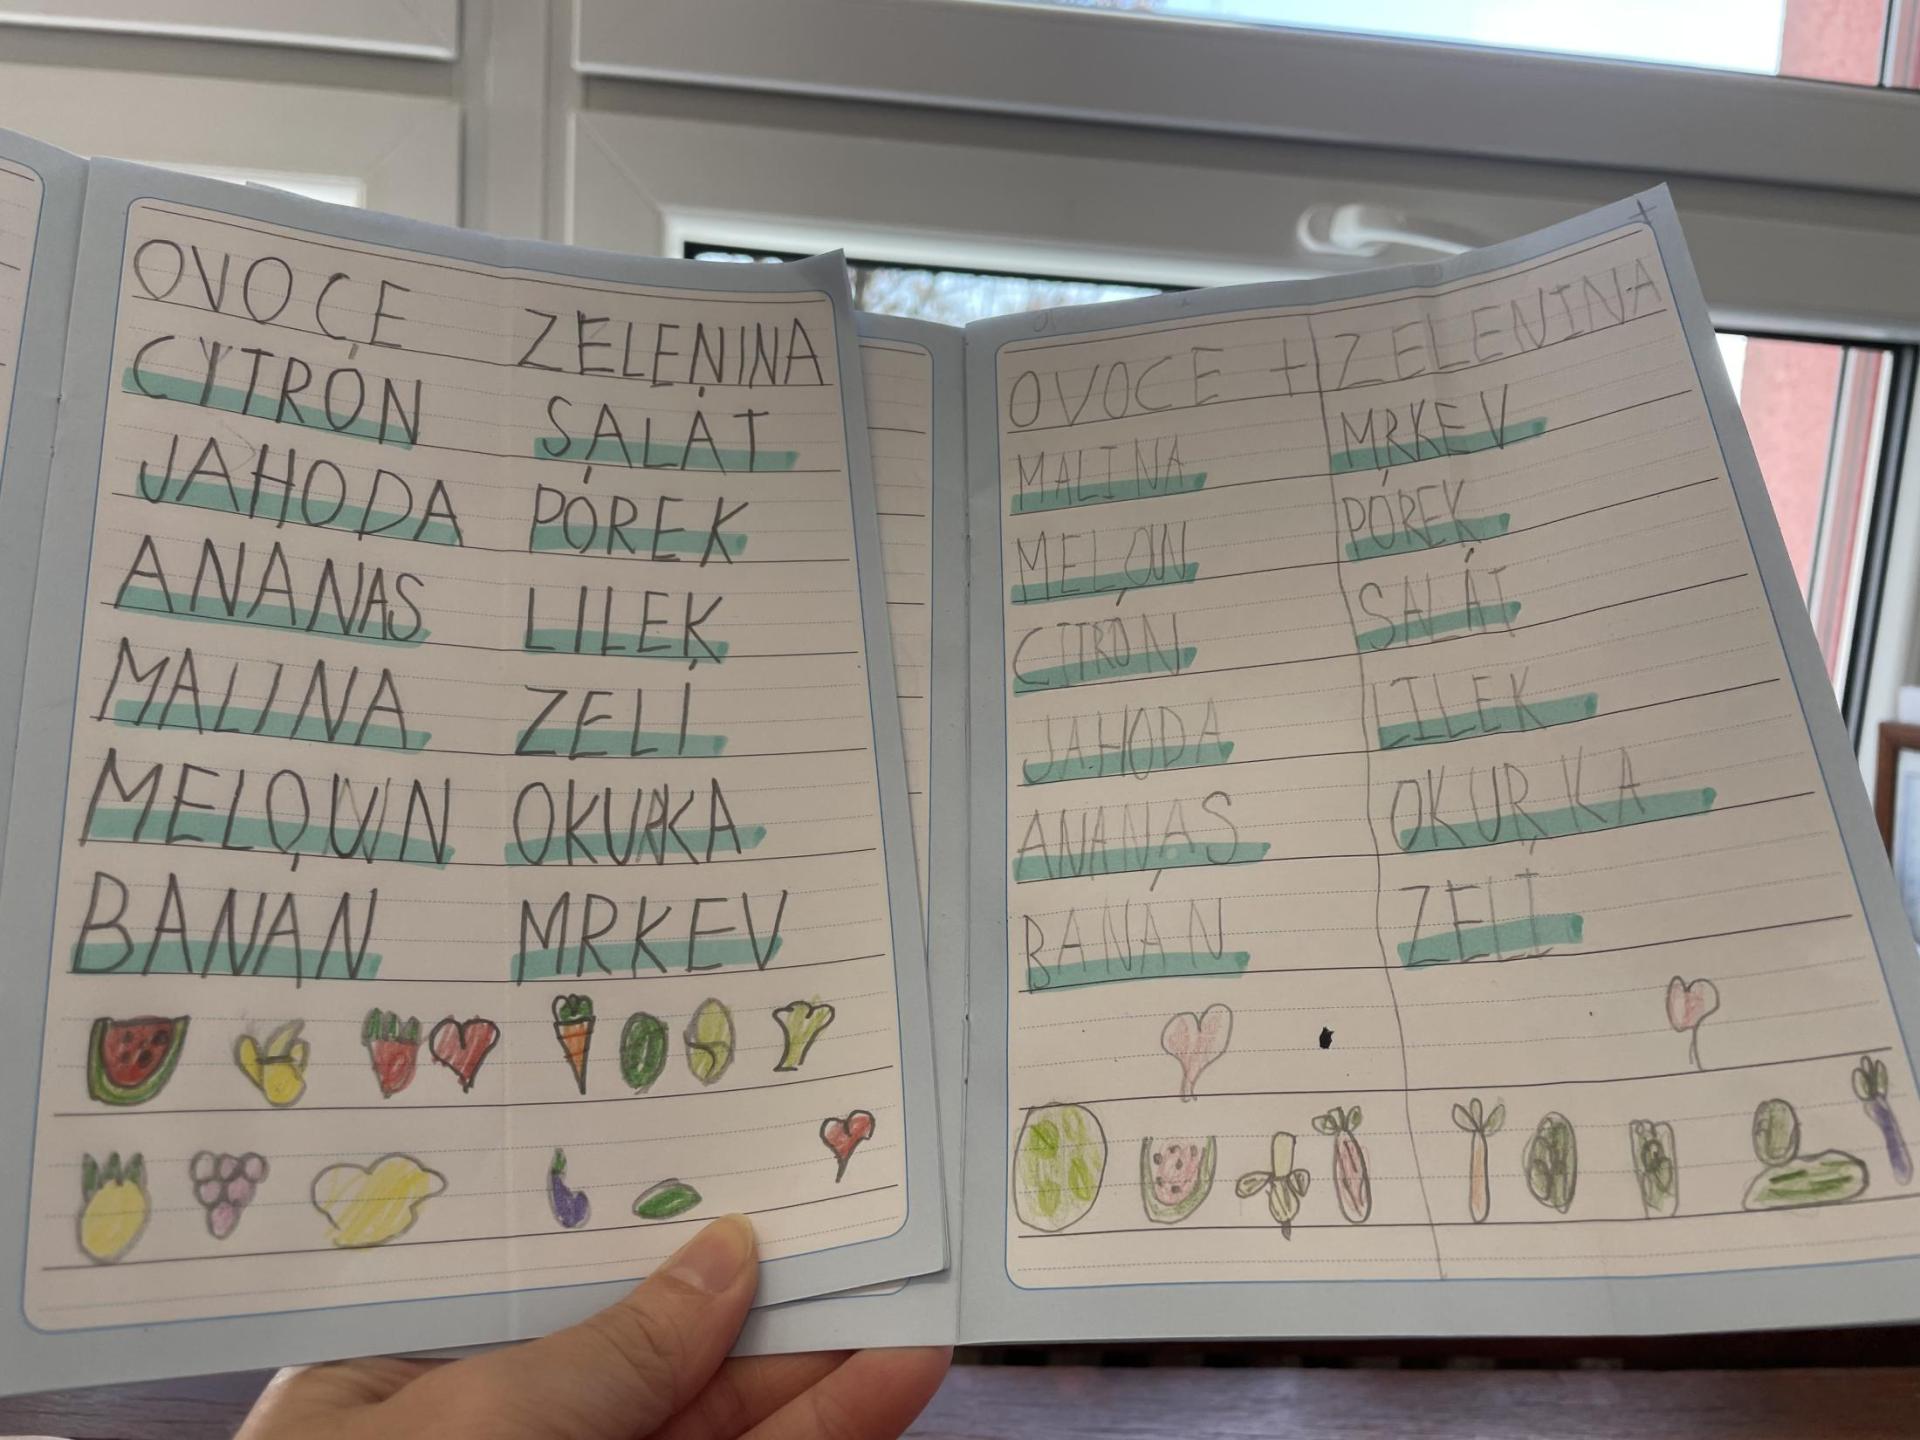 OVOCE ZELENINA
CYTRÓN SALÁT
JAHODA PÓREK
ANANAS LILEK
MALINA ZELÍ
MELOUN OKURKA
BANÁN MRKEV
+
OVOCE + ZELENINA
MALINA MRKEV
MELOUN PÓREK
CITRÓN SALÁT
JAHODA LILEK
ANANAS OKURKA
BANÁN ZELÍ